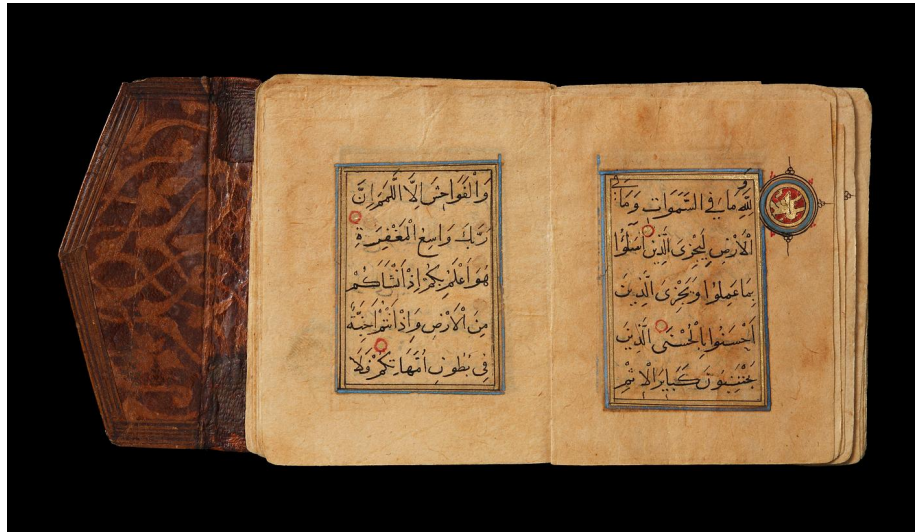 وَلِلَّهِ مَا فِي السَّمَوَاتِ وَمَا فِي
الْأَرْضِ لِيَجْزِيَ الَّذِينَ أَسَاؤُا
بِمَا عَمِلُوا وَيَجْزِيَ الَّذِينَ
أَحْسَنُوا بِالْحُسْنَى الَّذِينَ
يَجْتَنِبُونَ كَبَايِرَ الْإِثْمِ
وَالْفَوَاحِشَ إِلَّا اللَّمَمَ إِنَّ
رَبَّكَ وَاسِعُ الْمَغْفِرَةِ
هُوَ أَعْلَمُ بِكُمْ إِذْ أَنْشَأَكُمْ
مِنَ الْأَرْضِ وَإِذْ أَنْتُمْ أَجِنَّةٌ
فِي بُطُونِ أُمَّهَاتِكُمْ فَلَا